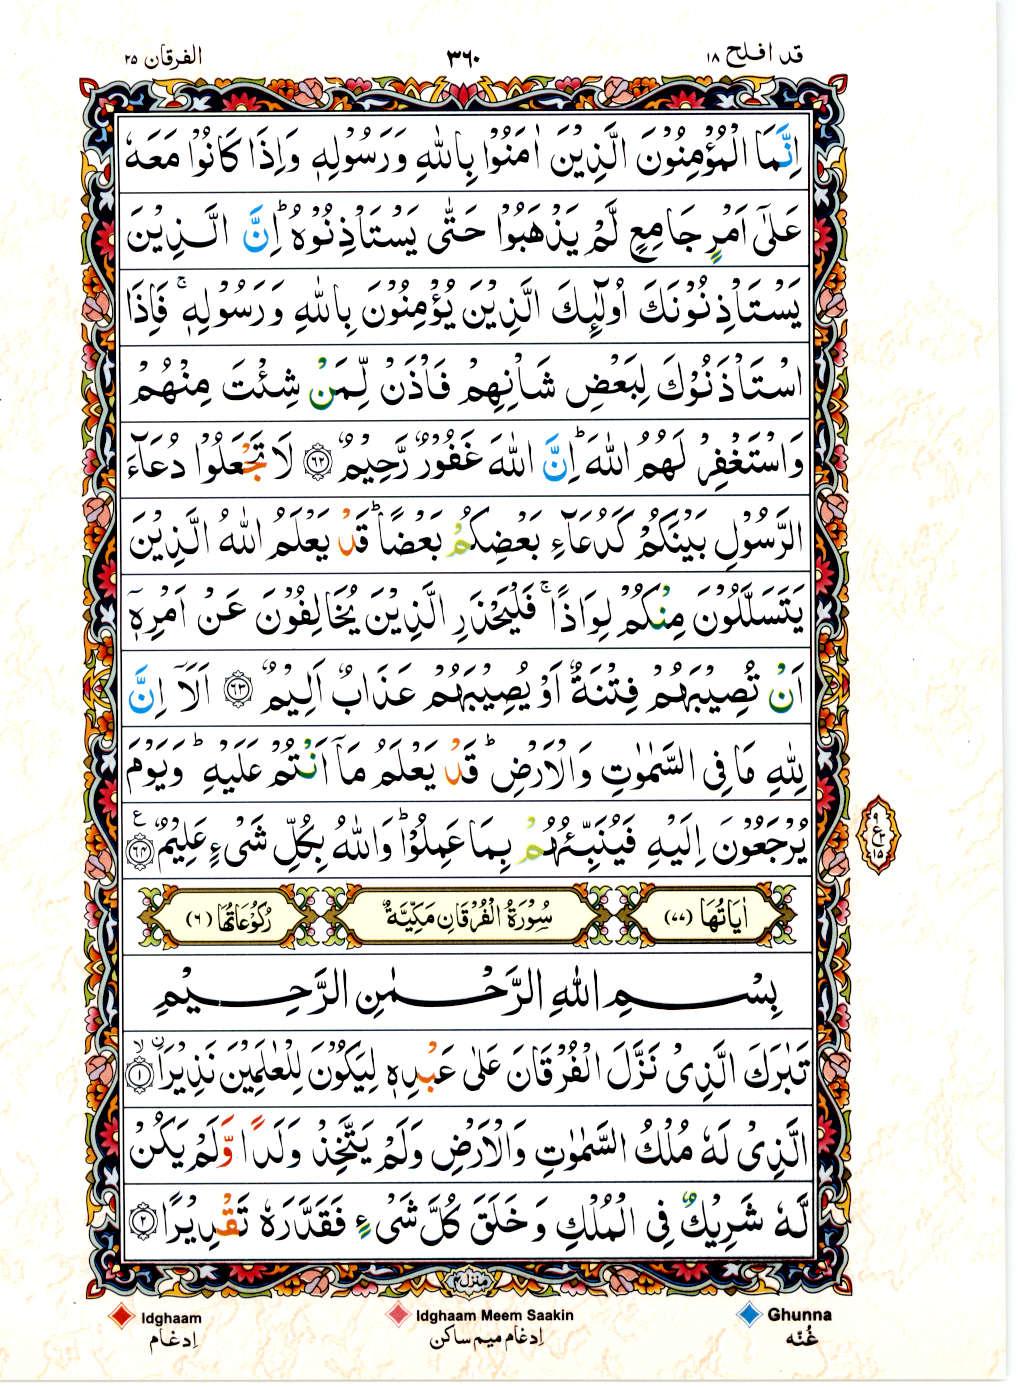 قد افلح ١٨
٣٦٠
الفرقان ٢٥
اِنَّمَا الْمُؤْمِنُوْنَ الَّذِيْنَ اٰمَنُوْا بِاللّٰهِ وَرَسُوْلِهٖ وَاِذَا كَانُوْا مَعَهٗ
عَلٰٓى اَمْرٍ جَامِعٍ لَّمْ يَذْهَبُوْا حَتّٰى يَسْتَاْذِنُوْهُ ؕ اِنَّ الَّذِيْنَ
يَسْتَاْذِنُوْنَكَ اُولٰٓئِكَ الَّذِيْنَ يُؤْمِنُوْنَ بِاللّٰهِ وَرَسُوْلِهٖ ۚ فَاِذَا
اسْتَاْذَنُوْكَ لِبَعْضِ شَاْنِهِمْ فَاْذَنْ لِّمَنْ شِئْتَ مِنْهُمْ
وَاسْتَغْفِرْ لَهُمُ اللّٰهَ ؕ اِنَّ اللّٰهَ غَفُوْرٌ رَّحِيْمٌ ﴿٦٢﴾ لَا تَجْعَلُوْا دُعَآءَ
الرَّسُوْلِ بَيْنَكُمْ كَدُعَآءِ بَعْضِكُمْ بَعْضًا ؕ قَدْ يَعْلَمُ اللّٰهُ الَّذِيْنَ
يَتَسَلَّلُوْنَ مِنْكُمْ لِوَاذًا ۚ فَلْيَحْذَرِ الَّذِيْنَ يُخَالِفُوْنَ عَنْ اَمْرِهٖٓ
اَنْ تُصِيْبَهُمْ فِتْنَةٌ اَوْ يُصِيْبَهُمْ عَذَابٌ اَلِيْمٌ ﴿٦٣﴾ اَلَآ اِنَّ
لِلّٰهِ مَا فِى السَّمٰوٰتِ وَالْاَرْضِ ؕ قَدْ يَعْلَمُ مَآ اَنْتُمْ عَلَيْهِ ؕ وَيَوْمَ
يُرْجَعُوْنَ اِلَيْهِ فَيُنَبِّئُهُمْ بِمَا عَمِلُوْا ؕ وَاللّٰهُ بِكُلِّ شَىْءٍ عَلِيْمٌ ﴿٦٤﴾ ع
٩
ع
١٥
اٰيَاتُهَا (٧٧)
سُوْرَةُ الْفُرْقَانِ مَكِّيَّةٌ
رُكُوْعَاتُهَا (٦)
بِسْمِ اللّٰهِ الرَّحْمٰنِ الرَّحِيْمِ
تَبٰرَكَ الَّذِىْ نَزَّلَ الْفُرْقَانَ عَلٰى عَبْدِهٖ لِيَكُوْنَ لِلْعٰلَمِيْنَ نَذِيْرًا ﴿١﴾
الَّذِىْ لَهٗ مُلْكُ السَّمٰوٰتِ وَالْاَرْضِ وَلَمْ يَتَّخِذْ وَلَدًا وَّلَمْ يَكُنْ
لَّهٗ شَرِيْكٌ فِى الْمُلْكِ وَخَلَقَ كُلَّ شَىْءٍ فَقَدَّرَهٗ تَقْدِيْرًا ﴿٢﴾
منزل ٤
Idghaam
Idghaam Meem Saakin
Ghunna
اِدغام
اِدغام میم ساکن
غُنّه